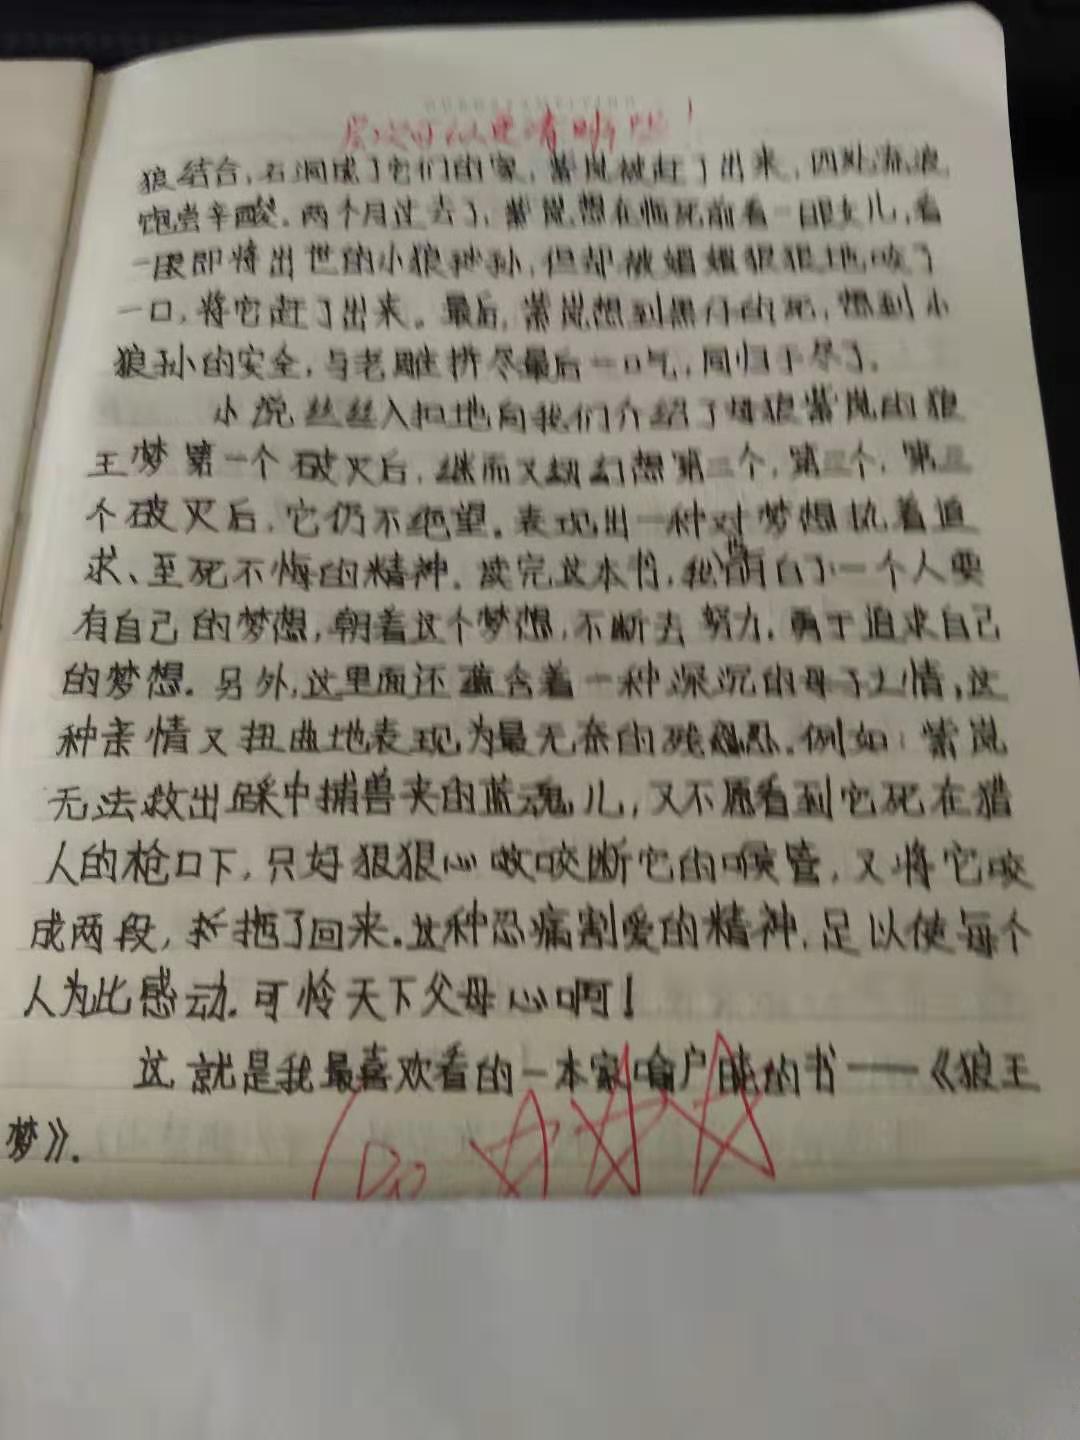 层次可以更清晰些!
狼结合,石洞成了它们的家,紫岚被赶了出来,四处流浪,
饱尝辛酸。两个月过去了,紫岚想在临死前看一眼女儿,看
一眼即将出世的小狼孙孙,但却被媚媚狠狠地咬了
一口,将它赶了出来。最后,紫岚想到黑仔的死,想到小
狼孙的安全,与老雕拼尽最后一口气,同归于尽了。
小说丝丝入扣地向我们介绍了母狼紫岚的狼
王梦第一个破灭后,继而又幻想第二个,第三个,第三
个破灭后,它仍不绝望。表现出一种对梦想执着追
求、至死不悔的精神。读完这本书,我明白了一个人要
有自己的梦想,朝着这个梦想,不断去努力,勇于追求自己
的梦想。另外,这里面还蕴含着一种深沉的母子之情,这
种亲情又扭曲地表现为最无奈的残忍。例如:紫岚
无法救出踩中捕兽夹的蓝魂儿,又不愿看到它死在猎
人的枪口下,只好狠狠心咬断它的喉管,又将它咬
成两段,拖了回来。这种忍痛割爱的精神,足以使每个
人为此感动。可怜天下父母心啊!
这就是我最喜欢看的一本家喻户晓的书——《狼王
梦》。